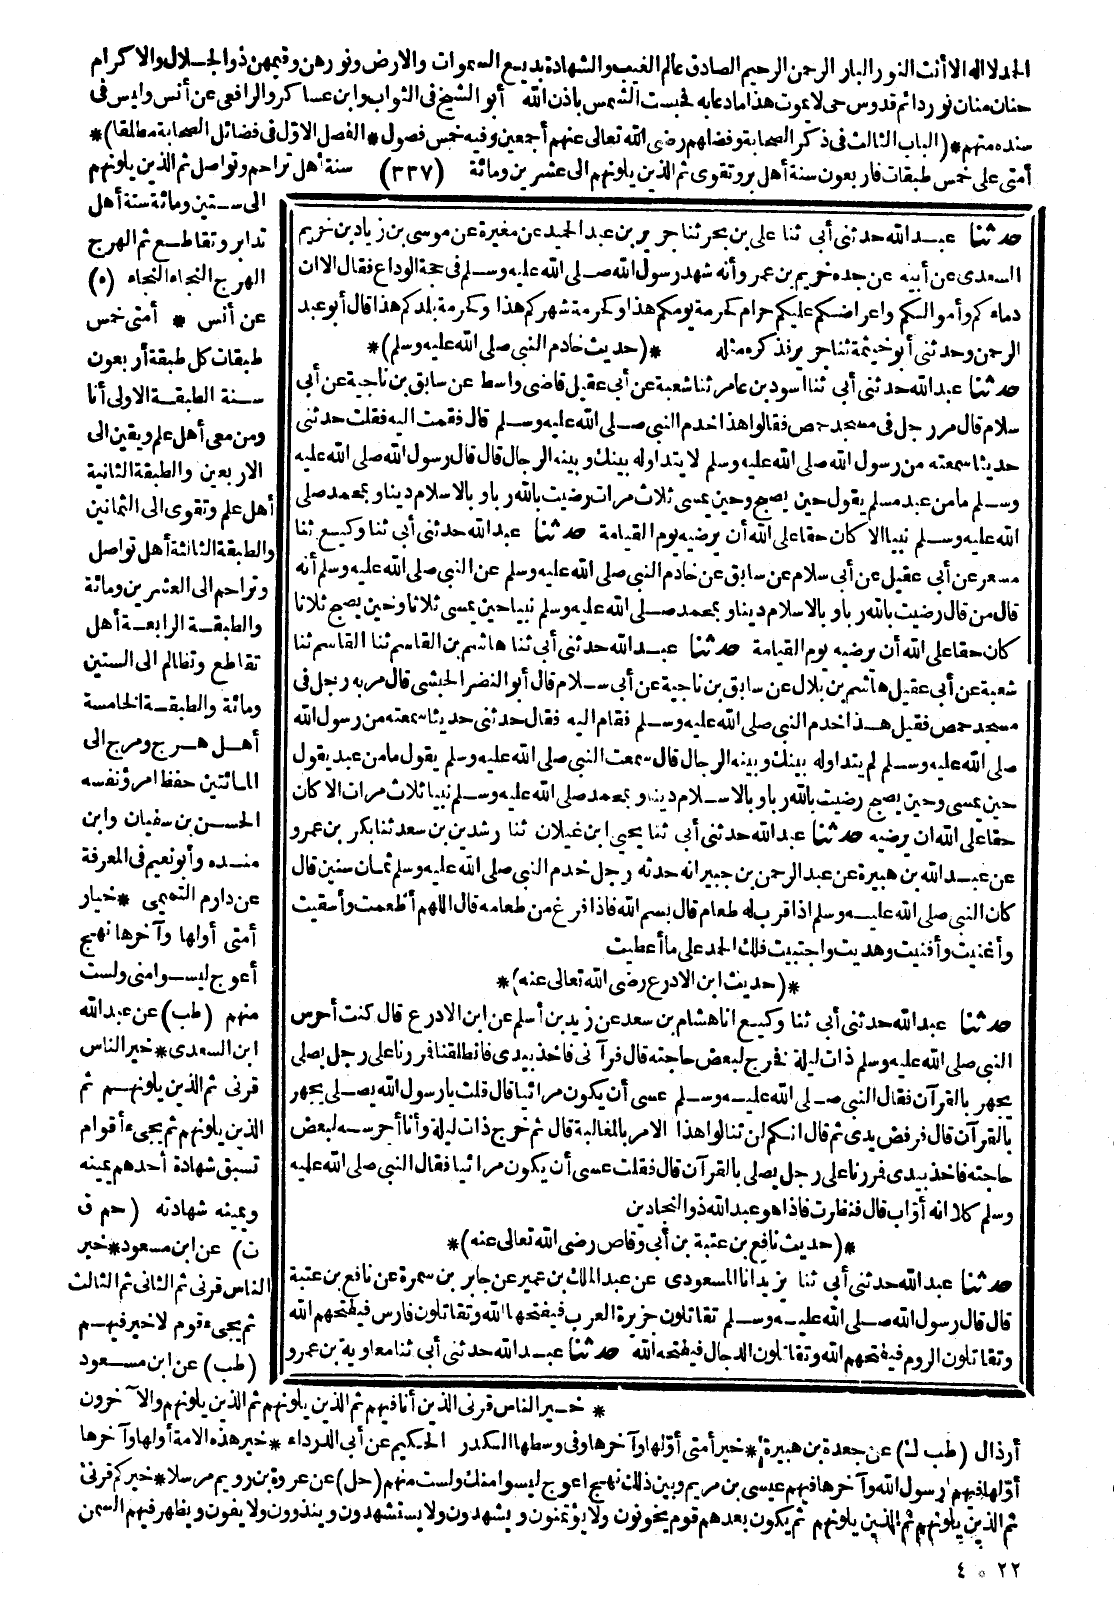 الحد لااله الاأنت النور البار الرحمن الرحيم الصادق عالم الغيب والشهادة بديع السموات والارض ونورهن وقيمهن ذو الجلال والاكرام
حنان منان نور دائم قدوس حى لا يموت هذا مادعابه فحبست الشمس باذن الله أبو الشيخ فى الثواب وابن عساكر والرافعى عن أنس وليس فى
سنده متهم *(الباب الثالث فى ذكر الصحابة وفضلهم رضى الله تعالى عنهم أجمعين وفيه خمس فصول * الفصل الاوّل فى فضائل الصحابة مطلقا)*
أمتى على خمس طبقات فاربعون سنة أهل بر وتقوى ثم الذين يلونهم الى عشرين ومائة (٣٣٧) سنة أهل تراحم وتواصل ثم الذين يلونهم
الى ستين ومائة سنة أهل
تدابر وتقاطع ثم الهرج
الهرج النجاء النجاء (ه)
عن أنس * أمتى خمس
طبقات كل طبقة أربعون
سنة الطبقة الاولى أنا
ومن معى أهل علم ويقين الى
الاربعين والطبقة الثانية
أهل علم وتقوى الى الثمانين
والطبقة الثالثة أهل تواصل
وتراحم الى العشرين ومائة
والطبقة الرابعة أهل
تقاطع وتظالم الى الستين
ومائة والطبقة الخامسة
أهل هرج ومرج الى
المائتين حفظ امرؤ نفسه
الحسن بن سفيان وابن
منده وأبو نعيم فى المعرفة
عن دارم التميمى * خيار
أمتى أولها وآخرها نهج
أعوج ليسوا منى ولست
منهم (طب) عن عبد الله
ابن السعدى * خير الناس
قرنى ثم الذين يلونهم ثم
الذين يلونهم ثم يجىء أقوام
تسبق شهادة أحدهم يمينه
ويمينه شهادته (حم ق
ت) عن ابن مسعود * خير
الناس قرنى ثم الثانى ثم الثالث
ثم يجىء قوم لا خير فيهم
(طب) عن ابن مسعود
حدثنا عبد الله حدثنى أبى ثنا على بن بحر ثنا جرير بن عبد الحميد عن مغيرة عن موسى بن زياد بن خريم
السعدى عن أبيه عن جده خريم بن عمرو أنه شهد رسول الله صلى الله عليه وسلم فى حجة الوداع فقال الا ان
دماءكم وأموالكم واعراضكم عليكم حرام كحرمة يومكم هذا وكحرمة شهركم هذا وكحرمة بلدكم هذا قال أبو عبد
الرحمن وحدثنى أبو خيثمة ثنا جرير فذكره مثله *(حديث خادم النبى صلى الله عليه وسلم)*
حدثنا عبد الله حدثنى أبى ثنا اسود بن عامر ثنا شعبة عن أبى عقيل قاضى واسط عن سابق بن ناجية عن أبى
سلام قال مر رجل فى مسجد حمص فقالوا هذا خدم النبى صلى الله عليه وسلم قال فقمت اليه فقلت حدثنى
حديثا سمعته من رسول الله صلى الله عليه وسلم لا يتداوله بينك وبينه الرجال قال قال رسول الله صلى الله عليه
وسلم ما من عبد مسلم يقول حين يصبح وحين يمسى ثلاث مرات رضيت بالله ربا وبالاسلام دينا وبمحمد صلى
الله عليه وسلم نبيا الا كان حقا على الله أن يرضيه يوم القيامة حدثنا عبد الله حدثنى أبى ثنا وكيع ثنا
مسعر عن أبى عقيل عن أبى سلام عن سابق عن خادم النبى صلى الله عليه وسلم عن النبى صلى الله عليه وسلم أنه
قال من قال رضيت بالله ربا وبالاسلام دينا وبمحمد صلى الله عليه وسلم نبيا حين يمسى ثلاثا وحين يصبح ثلاثا
كان حقا على الله أن يرضيه يوم القيامة حدثنا عبد الله حدثنى أبى ثنا هاشم بن القاسم ثنا القاسم ثنا
شعبة عن أبى عقيل هاشم بن بلال عن سابق بن ناجية عن أبى سلام قال أبو النضر الحبشى قال مر به رجل فى
مسجد حمص فقيل هذا خدم النبى صلى الله عليه وسلم فقام اليه فقال حدثنى حديثا سمعته من رسول الله
صلى الله عليه وسلم لم يتداوله بينك وبينه الرجال قال سمعت النبى صلى الله عليه وسلم يقول ما من عبد يقول
حين يمسى وحين يصبح رضيت بالله ربا وبالاسلام دينا وبمحمد صلى الله عليه وسلم نبيا ثلاث مرات الا كان
حقا على الله ان يرضيه حدثنا عبد الله حدثنى أبى ثنا يحيى ابن غيلان ثنا رشدين بن سعد ثنا بكر بن عمرو
عن عبد الله بن هبيرة عن عبد الرحمن بن جبير انه حدثه رجل خدم النبى صلى الله عليه وسلم ثمان سنين قال
كان النبى صلى الله عليه وسلم اذا قرب له طعام قال بسم الله فاذا فرغ من طعامه قال اللهم أطعمت وأسقيت
وأغنيت وأقنيت وهديت واجتبيت فلك الحد على ما أعطيت
*(حديث ابن الادرع رضى الله تعالى عنه)*
حدثنا عبد الله حدثنى أبى ثنا وكيع انا هشام بن سعد عن زيد بن أسلم عن ابن الادرع قال كنت أحرس
النبى صلى الله عليه وسلم ذات ليلة فخرج لبعض حاجته قال فرآنى فاخذ بيدى فانطلقنا فررنا على رجل يصلى
يجهر بالقرآن فقال النبى صلى الله عليه وسلم عسى أن يكون مرائيا قال قلت يارسول الله يصلى يجهر
بالقرآن قال فرفض يدى ثم قال انكم لن تنالوا هذا الامر بالمغالبة قال ثم خرج ذات ليلة وأنا أحرسه لبعض
حاجته فاخذ بيدى فررنا على رجل يصلى بالقرآن قال فقلت عسى أن يكون مرائيا فقال النبى صلى الله عليه
وسلم كلا انه أوّاب قال فنظرت فاذا هو عبد الله ذو النجادين
*(حديث نافع بن عتبة بن أبى وقاص رضى الله تعالى عنه)*
حدثنا عبد الله حدثنى أبى ثنا يزيد انا المسعودى عن عبد الملك بن عمير عن جابر بن سمرة عن نافع بن عتبة
قال قال رسول الله صلى الله عليه وسلم تقاتلون جزيرة العرب فيفتحها الله وتقاتلون فارس فيفتحهم الله
وتقاتلون الروم فيفتحهم الله وتقاتلون الدجال فيفتحه الله حدثنا عبد الله حدثنى أبى ثنا معاوية بن عمرو
* خير الناس قرنى الذين أنا فيهم ثم الذين يلونهم ثم الذين يلونهم والآخرون
أرذال (طب ك) عن جعدة بن هبيرة * خير أمتى أوّلها وآخرها وفى وسطها الكدر الحكيم عن أبى الدرداء * خير هذه الامة أولها وآخرها
أوّلها فيهم رسول الله وآخرها فيهم عيسى بن مريم وبين ذلك نهج اعوج ليسوا منك ولست منهم (حل) عن عروة بن رويم مرسلا * خيركم قرنى
ثم الذين يلونهم ثم الذين يلونهم ثم يكون بعدهم قوم يخونون ولا يؤتمنون ويشهدون ولا يستشهدون وينذرون ولا يفون ويظهر فيهم السمن
٢٢ * ٤